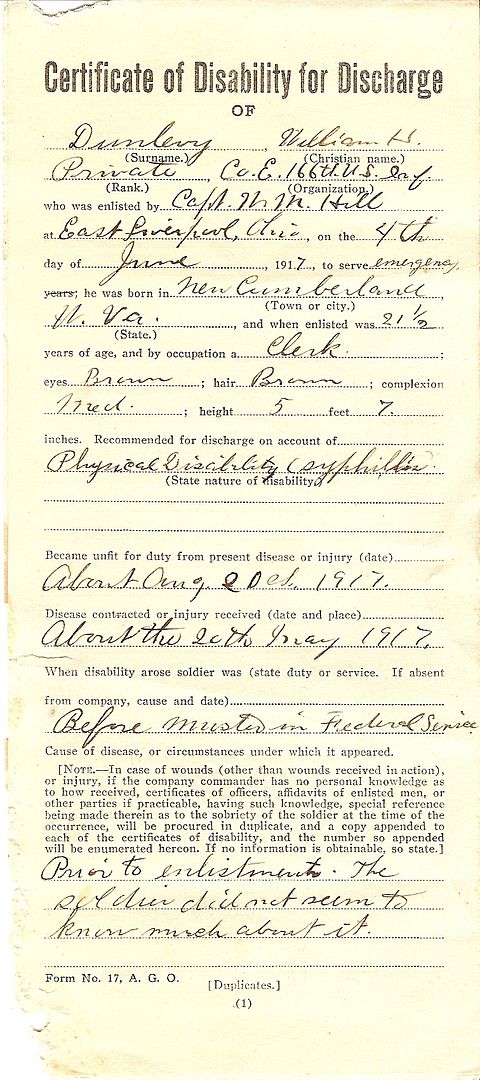 Certificate of Disability for Discharge
OF
Dunlevy, William H.
(Surname.) (Christian name.)
Private, Co. E. 166th U.S. Inf
(Rank.) (Organization.)
who was enlisted by Capt. W. M. Hill
at East Liverpool, Ohio, on the 4th
day of June, 1917, to serve emergency
years; he was born in New Cumberland,
(Town or city.)
W. Va., and when enlisted was 21 1/2
(State.)
years of age, and by occupation a Clerk;
eyes Brown; hair Brown; complexion
Med.; height 5 feet 7
inches. Recommended for discharge on account of
Physical Disability (syphillis
(State nature of disability)
Became unfit for duty from present disease or injury (date)
About Aug 1917.
Disease contracted or injury received (date and place)
About the 20th May 1917.
When disability arose soldier was (state duty or service. If absent
from company, cause and date)
Before muster in Federal Service
Cause of disease, or circumstances under which it appeared.
[NOTE.—In case of wounds (other than wounds received in action),
or injury, if the company commander has no personal knowledge as
to how received, certificates of officers, affidavits of enlisted men, or
other parties if practicable, having such knowledge, special reference
being made therein as to the sobriety of the soldier at the time of the
occurrence, will be procured in duplicate, and a copy appended to
each of the certificates of disability, and the number so appended
will be enumerated hereon. If no information is obtainable, so state.]
Prior to enlistment. The
soldier did not seem to
know much about it.
Form No. 17, A. G. O.
[Duplicates.]
(1)